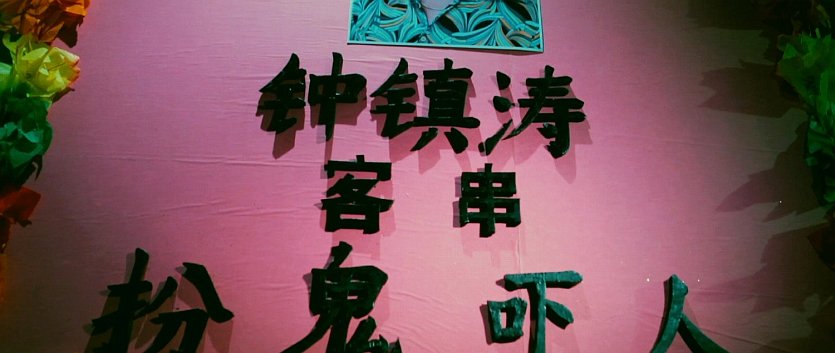 钟镇涛
客串
扮鬼吓人